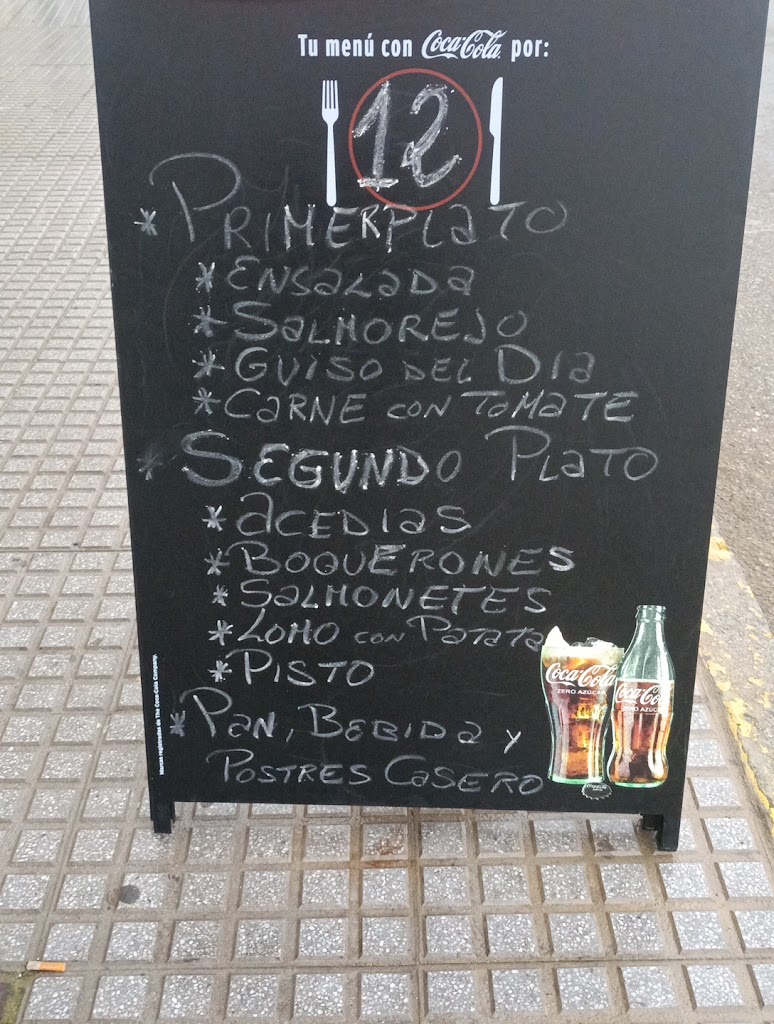 Tu menú con Coca-Cola por:
12
* PRIMER PLATO
* ENSALADA
* SALMOREJO
* GUISO DEL DIA
* CARNE CON TAMATE
* SEGUNDO PLATO
* ACEDIAS
* BOQUERONES
* SALMONETES
* LOMO CON PATATA
* PISTO
* PAN, BEBIDA Y
POSTRES CASERO
Coca-Cola
ZERO AZÚCAR
Coca-Cola
ZERO AZÚCAR
Marcas registradas de The Coca-Cola Company.